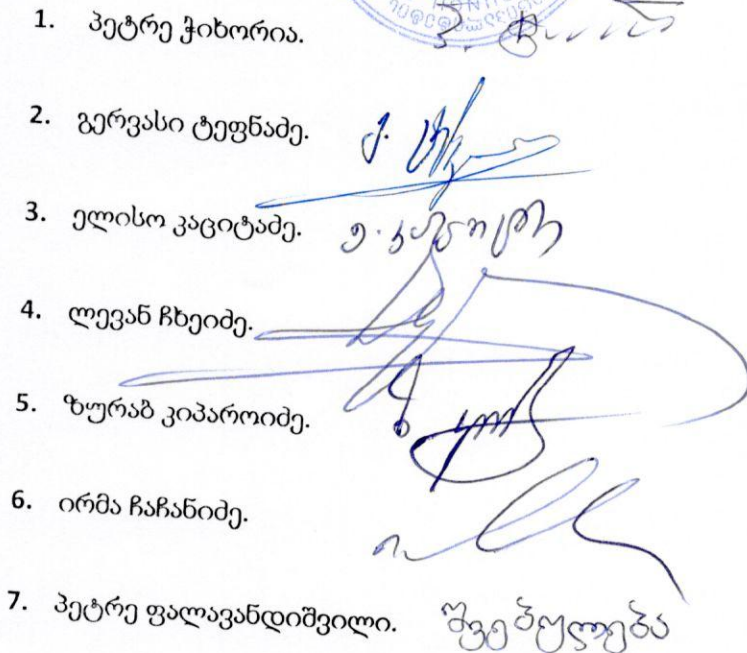 1. პეტრე ჭიხორია.
2. გერვასი ტეფნაძე.
3. ელისო კაციტაძე.
4. ლევან ჩხეიძე.
5. ზურაბ კიპაროიძე.
6. ირმა ჩაჩანიძე.
7. პეტრე ფალავანდიშვილი. შვებულება